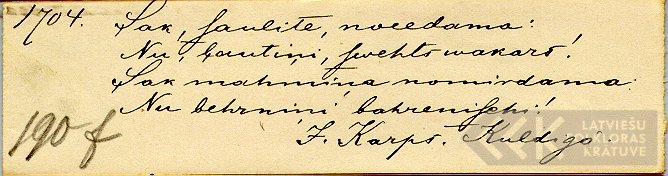 1704. Sak, saulite, noeedama:
Nu, ļautiņi, swehts wakars!
Sak mahmiņa nomirdama:
Nu behrniņi bahrenischi!
190 f
J. Karps. Kuldigā.
LATVIEŠU
FOLKLORAS
KRĀTUVE